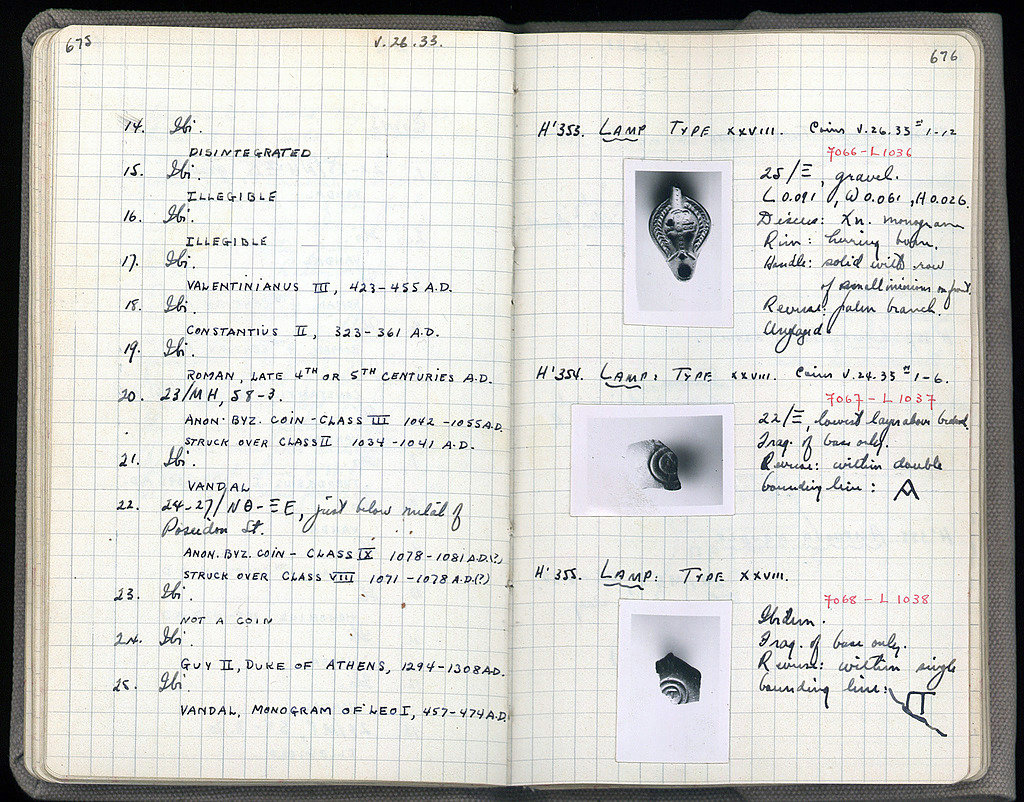 675
V.26.33.
14. Ibi.
DISINTEGRATED
15. Ibi.
ILLEGIBLE
16. Ibi.
ILLEGIBLE
17. Ibi.
VALENTINIANUS III, 423-455 A.D.
18. Ibi.
CONSTANTIUS II, 323-361 A.D.
19. Ibi.
ROMAN, LATE 4TH OR 5TH CENTURIES A.D.
20. 23/MH, 58-3.
ANON. BYZ. COIN - CLASS III 1042-1055 A.D.
STRUCK OVER CLASS II 1034-1041 A.D.
21. Ibi.
VANDAL
22. 24-27/NΘ-ΞE, just below metal of
Poseidon St.
ANON. BYZ. COIN - CLASS IX 1078-1081 A.D.(?)
STRUCK OVER CLASS VIII 1071-1078 A.D.(?)
23. Ibi.
NOT A COIN
24. Ibi.
GUY II, DUKE OF ATHENS, 1294-1308 A.D.
25. Ibi.
VANDAL, MONOGRAM OF LEO I, 457-474 A.D.
676
H'353. LAMP TYPE XXVIII. Coins V.26.33 # 1-12
7066-L1036
25/Ξ, gravel.
L 0.091, W 0.061, H 0.026.
Discus: Xn. monogram
Rim: herring bone.
Handle: solid with row
of small on front.
Reverse: palm branch.
Unglazed.
H'354. LAMP: TYPE XXVIII. Coins V.24.33 # 1-6.
7067-L1037
22/Ξ, lowest layer above
Frag. of base only.
Reverse: within double
bounding line: A
H'355. LAMP: TYPE XXVIII.
7068-L1038
Ibidem.
Frag. of base only.
Reverse: within single
bounding line: